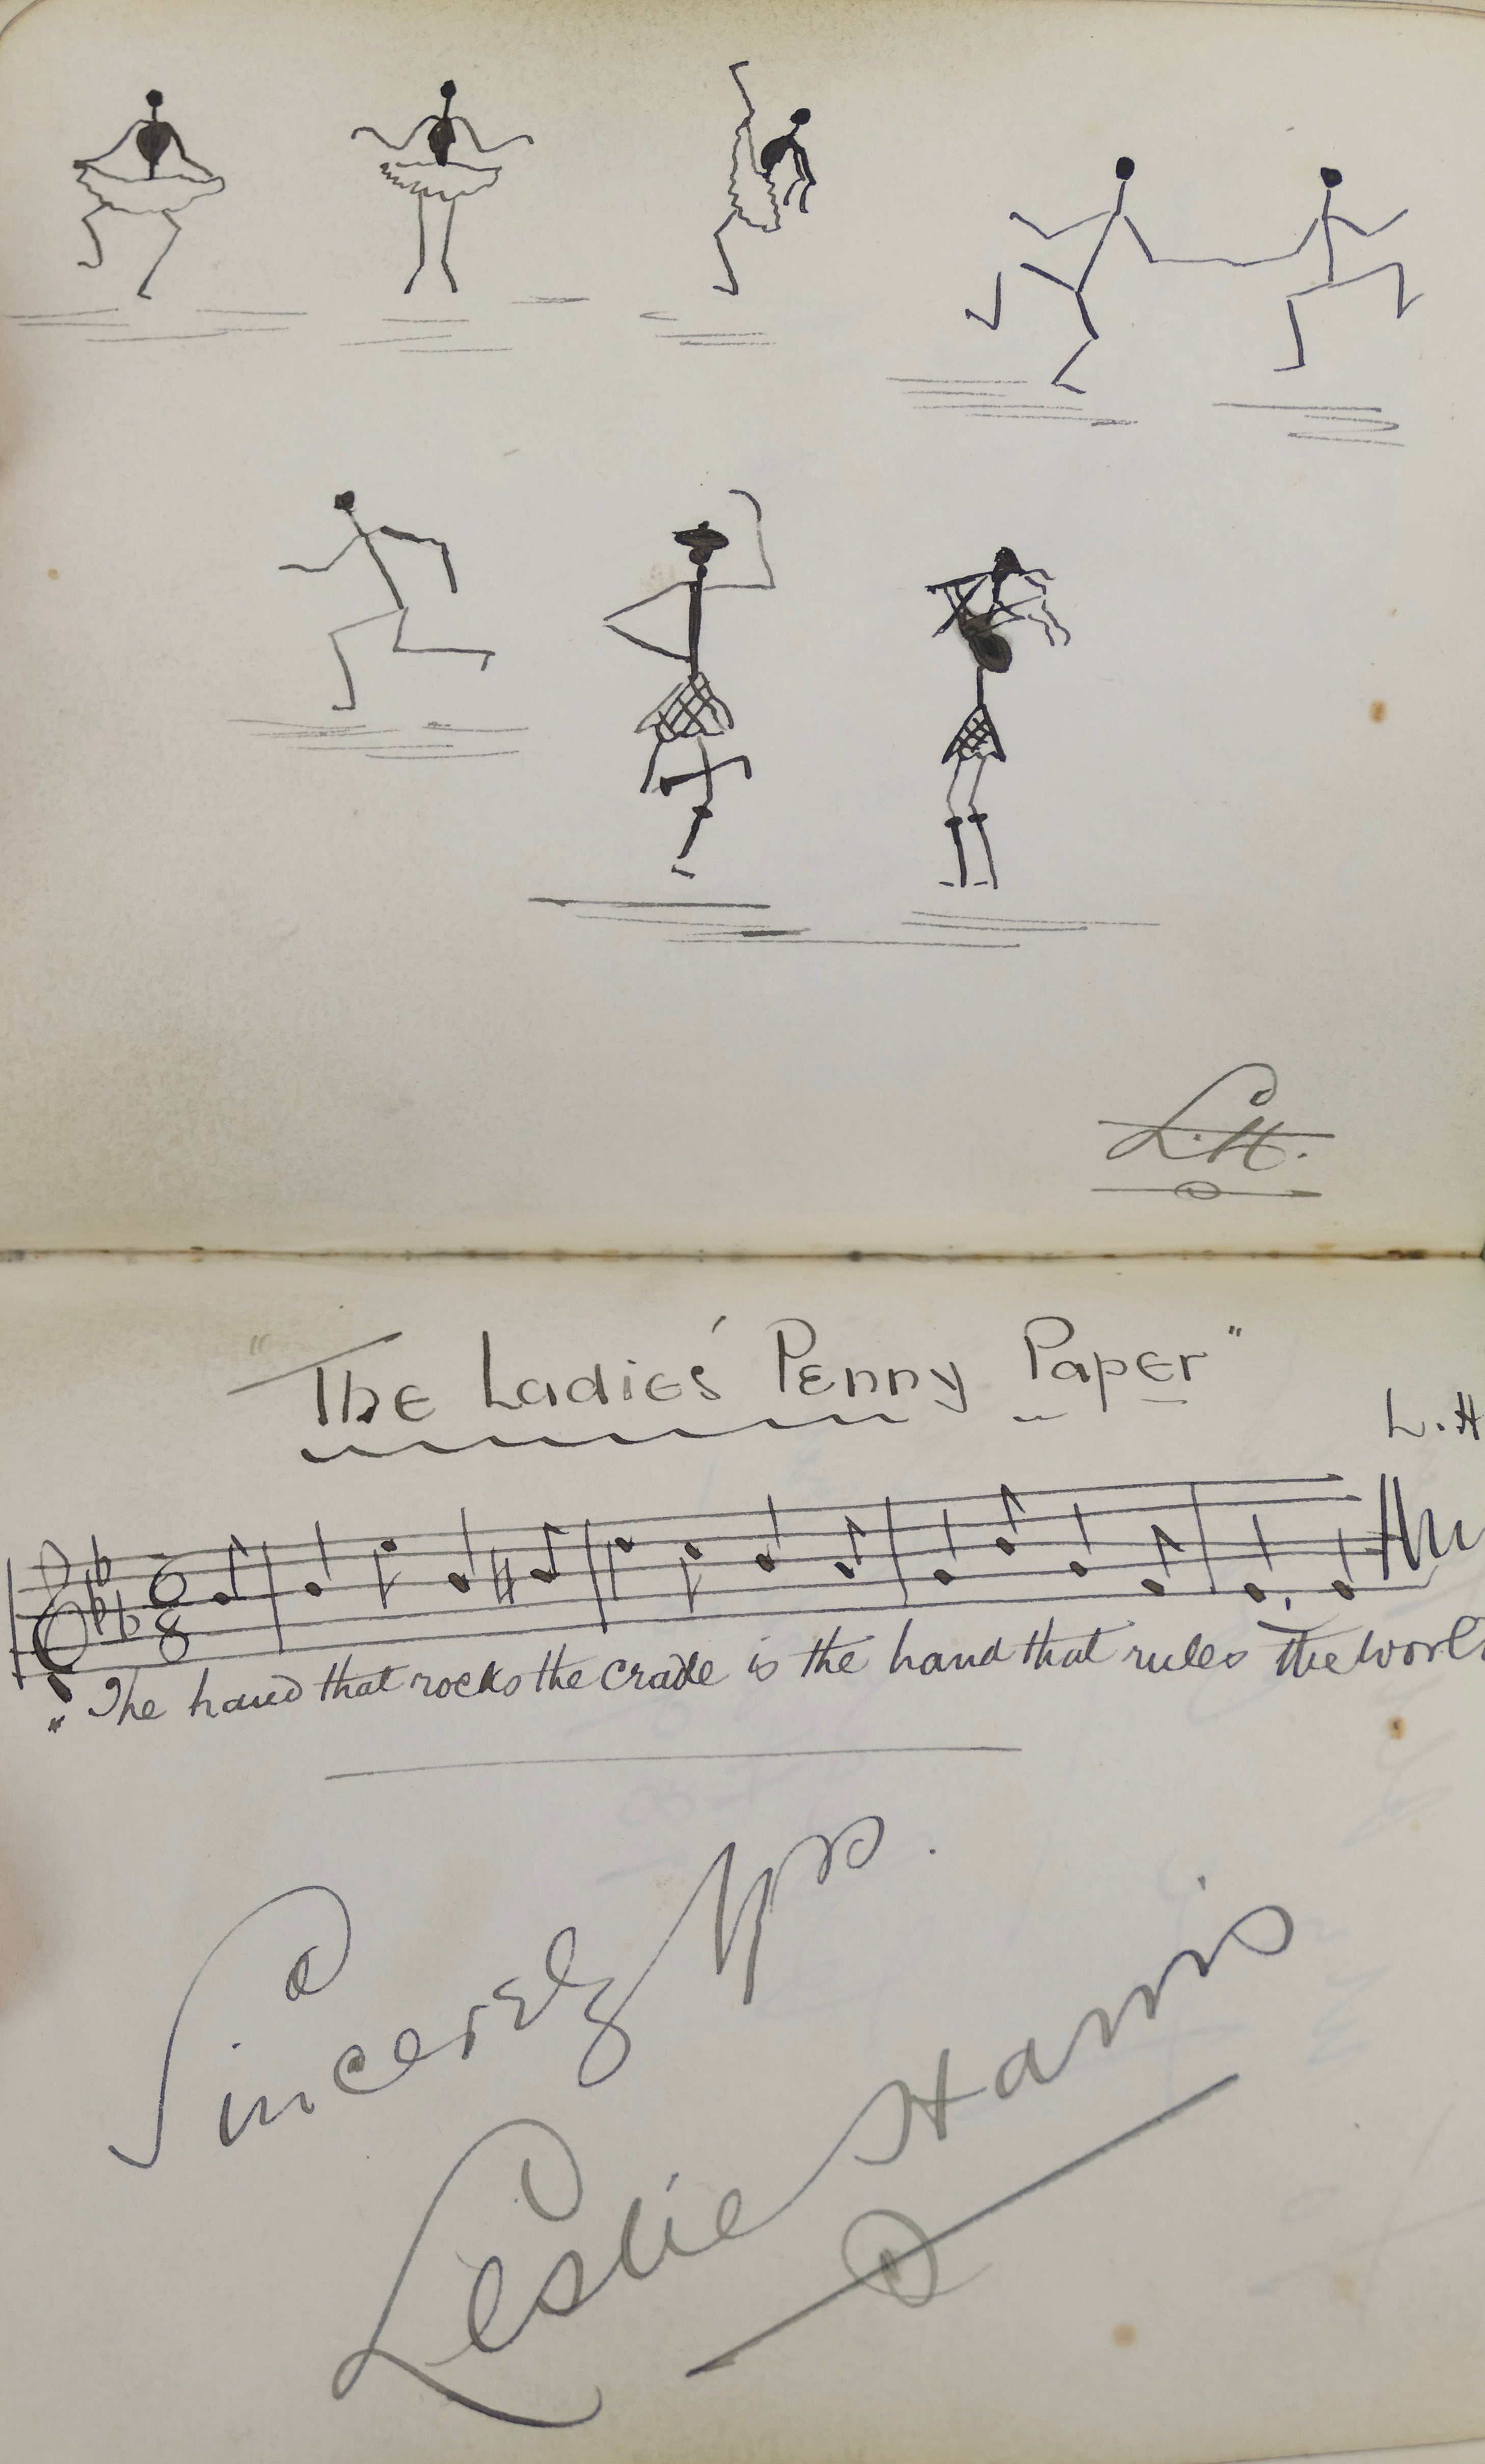 L.H.
"The Ladies' Penny Paper"
L.H
6
8
"The hand that rocks the cradle is the hand that rules the worl
Sincerely Yrs.
Leslie Harris